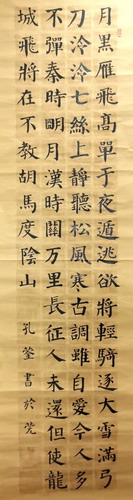 月黑雁飛髙單于夜遁逃欲將輕騎逐大雪滿弓
刀泠泠七絲上靜聽松風寒古調雖自愛今人多
不彈秦時明月漢時關万里長征人未還但使龍
城飛將在不教胡馬度陰山
書於莞